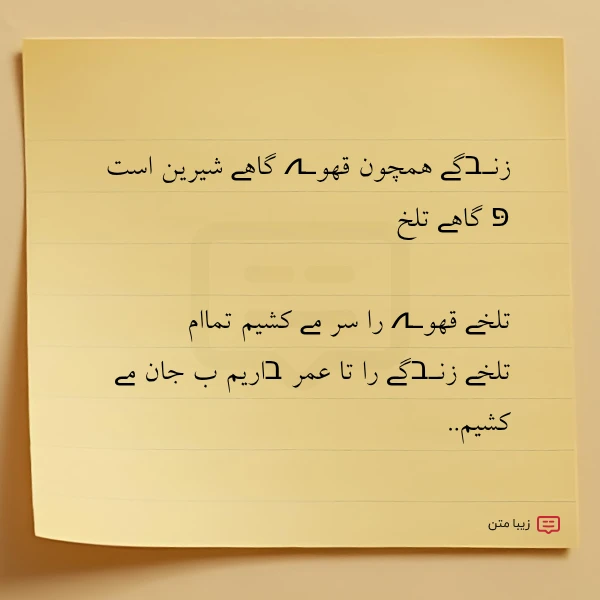 زنـבگے همچون قهوـہ گاهے شیرین است
و گاهے تلخ
تلخے قهوـہ را سر مے کشیم تماام
تلخے زنـבگے را تا عمر בاریم ب جان مے
کشیم..
زیبا متن